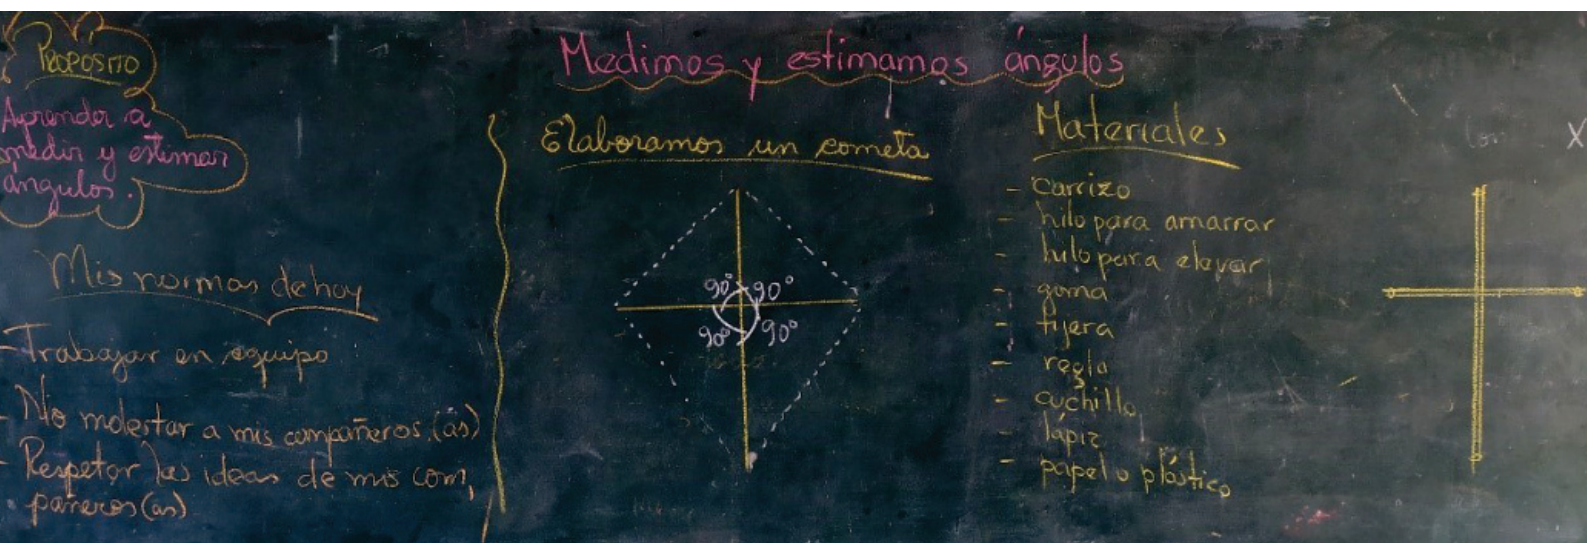 PROPOSITO
Aprender a
medir y estimar
ángulos.
Mis normas de hoy
- Trabajar en equipo
- No molestar a mis compañeros (as)
- Respetar las ideas de mis com,
pañeros (as)
Medimos y estimamos ángulos
Elaboramos un cometa
90° 90°
90° 90°
Materiales
- carrizo
- hilo para amarrar
- hilo para elevar
- goma
- tijera
- regla
- cuchillo
- lápiz
- papel o plástico
X